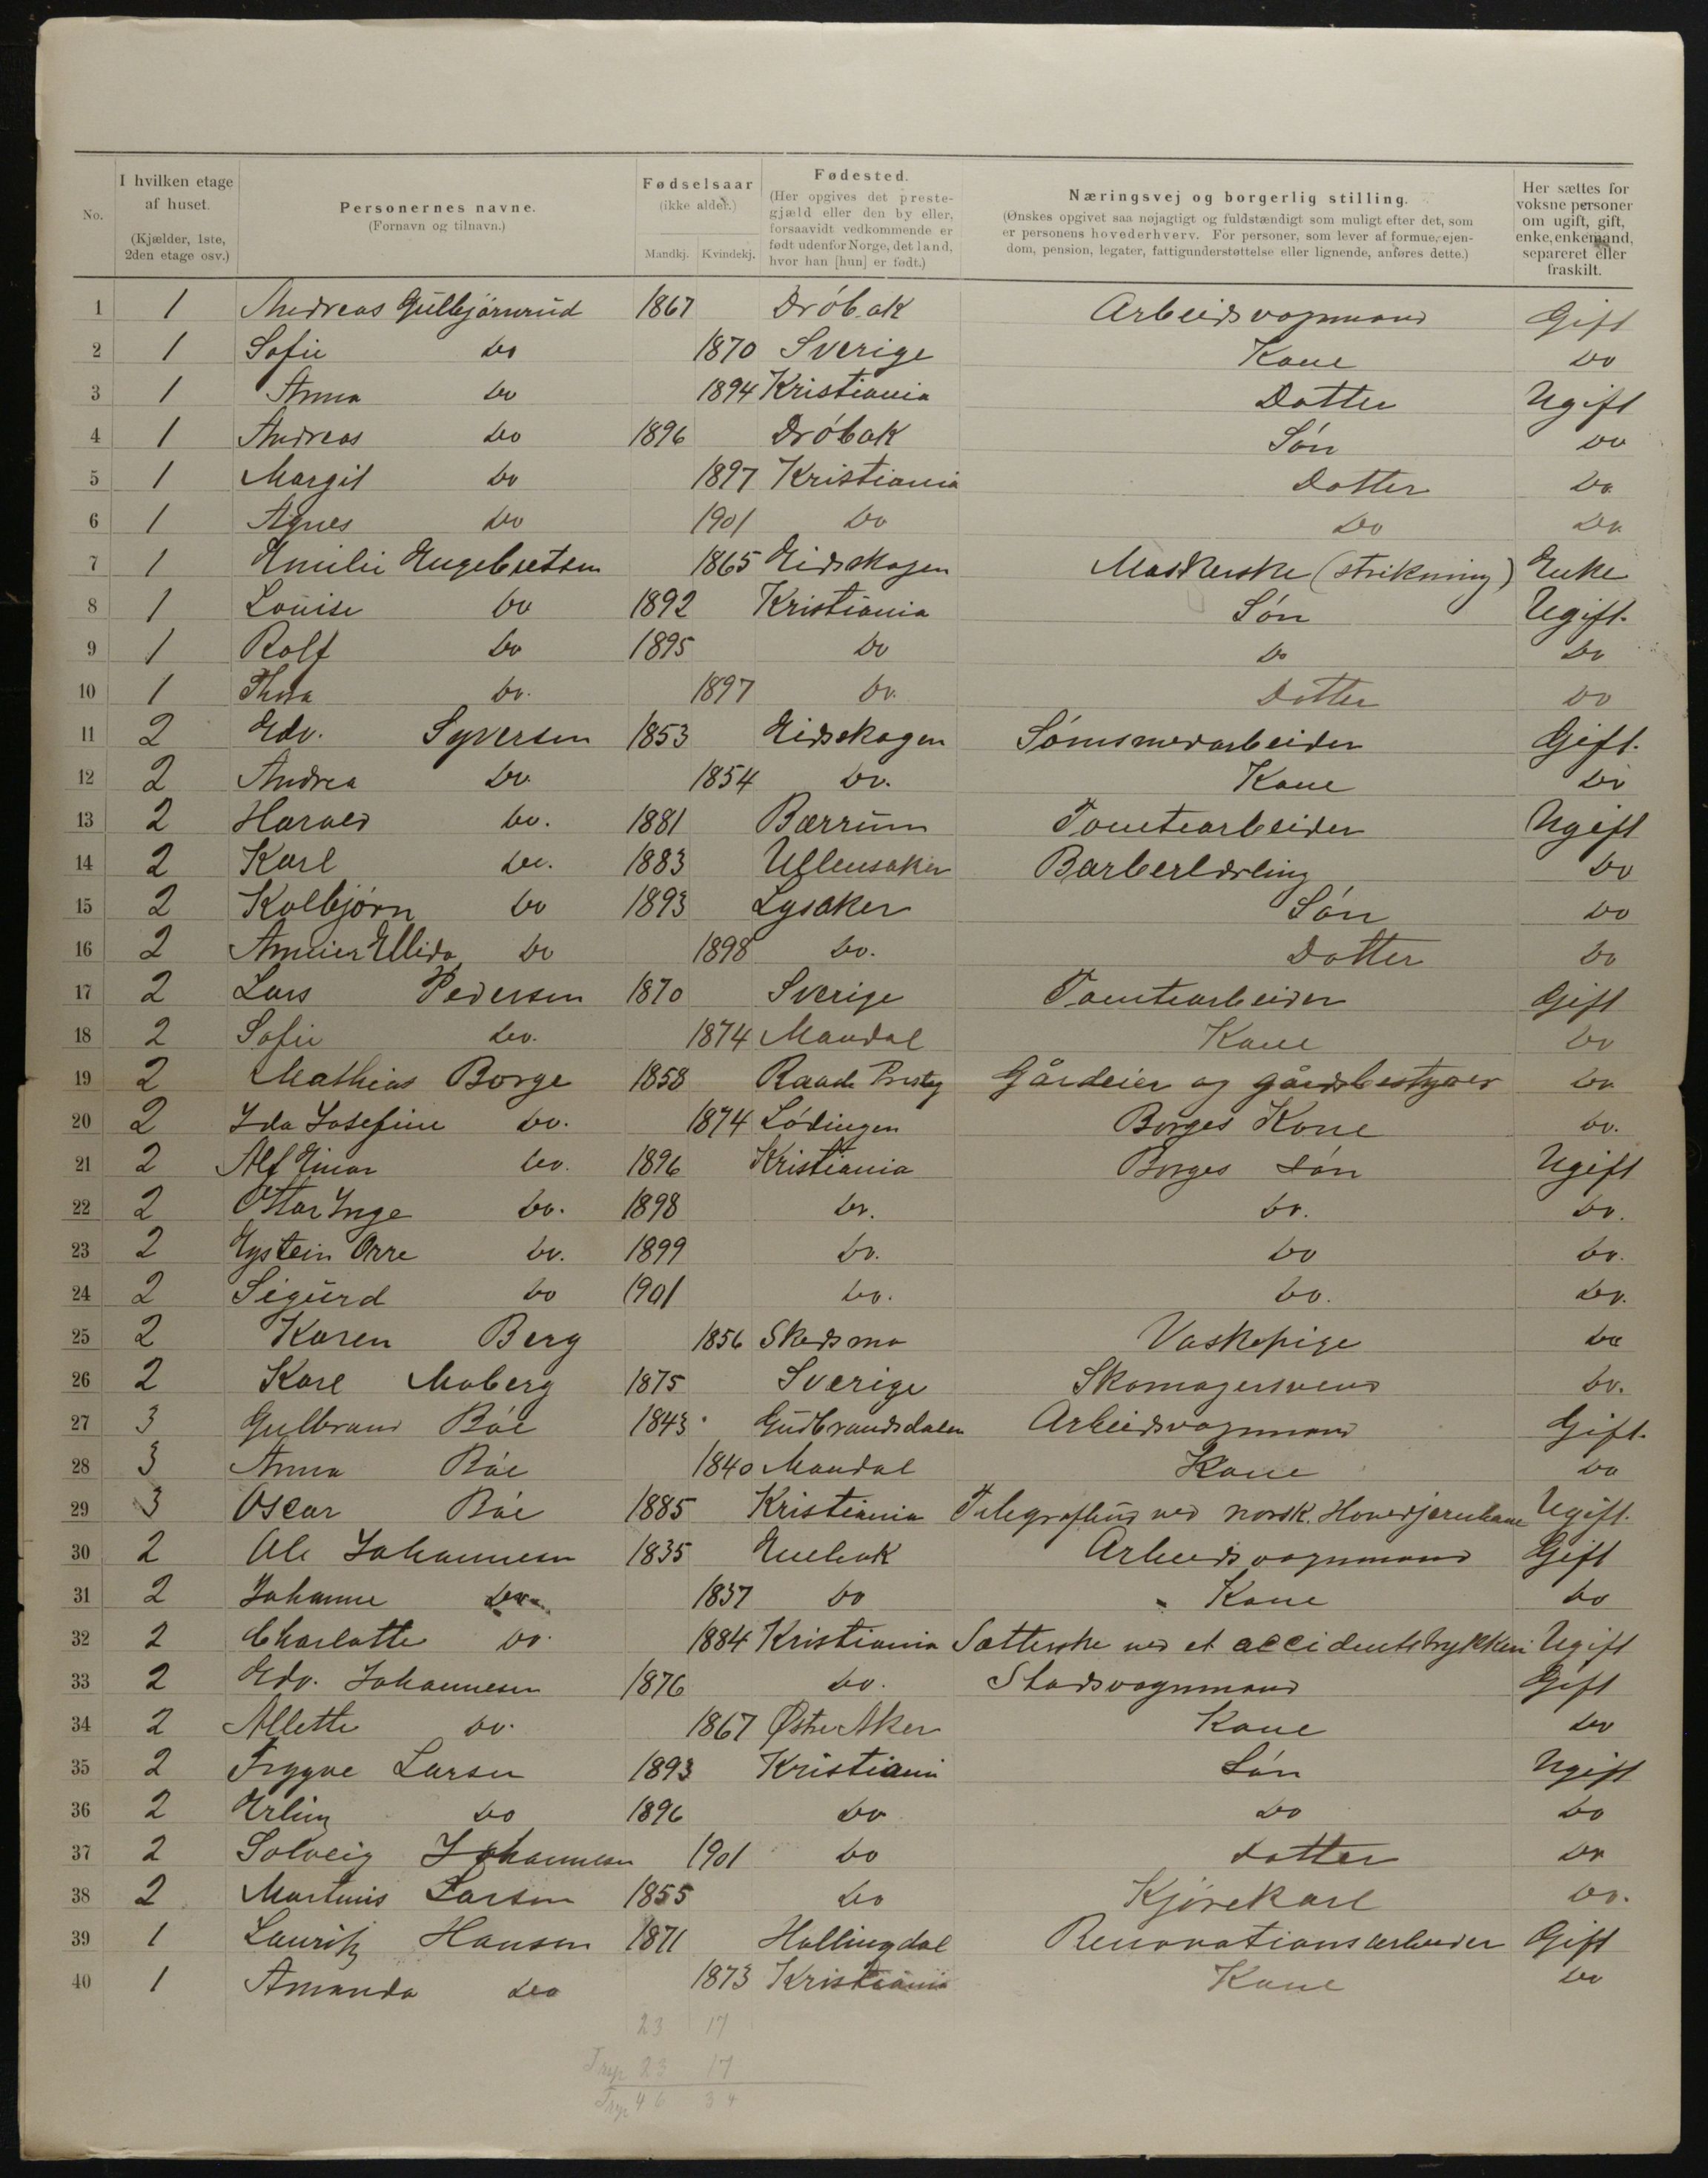 No. | I hvilken etage af huset. (Kjælder, 1ste, 2den etage osv.) | Personernes navne. (Fornavn og tilnavn.) | Fødselsaar (ikke alder.) Mandkj. Kvindekj. | Fødested. (Her opgives det prestegjæld eller den by eller, forsaavidt vedkommende er født udenfor Norge, det land, hvor han [hun] er født.) | Næringsvej og borgerlig stilling. (Ønskes opgivet saa nøjagtigt og fuldstændigt som muligt efter det, som er personens hovederhverv. For personer, som lever af formue, ejendom, pension, legater, fattigunderstøttelse eller lignende, anføres dette.) | Her sættes for voksne personer om ugift, gift, enke, enkemand, separeret eller fraskilt.
1 1 Andreas Gulbjørnrud 1867 Drøbak Arbeidsvognmand Gift
2 1 Sofie do 1870 Sverige Kone do
3 1 Anna do 1894 Kristiania Datter Ugift
4 1 Andreas do 1896 Drøbak Søn do
5 1 Margit do 1897 Kristiania Datter do
6 1 Agnes do 1901 do do do
7 1 Emilie Engebretsen 1865 Eidskogen (strikning) Enke
8 1 Louise do 1892 Kristiania Søn Ugift.
9 1 Rolf do 1895 do do do
10 1 Thora do. 1897 do. Datter do
11 2 Edv. Syversen 1853 Eidskogen Sømsmedarbeider Gift.
12 2 Andrea do. 1854 do. Kone do
13 2 Harald do. 1881 Bærrum Tomtearbeider Ugift
14 2 Karl do. 1883 Ullensaker Barberlærling do
15 2 Kolbjørn do 1893 Lysaker Søn do
16 2 Ellida do 1898 do. Datter do
17 2 Lars Pedersen 1870 Sverige Tomtearbeider Gift
18 2 Sofie do. 1874 Mandal Kone do
19 2 Mathias Borge 1858 Raade Prestg Gårdeier og gårdsbestyrer do
20 2 Ida Josefine do. 1874 Lødingen Borges Kone do.
21 2 Alf Einar do. 1896 Kristiania Borges Søn Ugift
22 2 Ottar Inge do. 1898 do. do. do.
23 2 Eystein Orre do. 1899 do. do do.
24 2 Sigurd do 1901 do. do. do.
25 2 Karen Berg 1856 Skedsmo Vaskepige do
26 2 Karl Moberg 1875 Sverige Skomagersvend do.
27 3 Gulbrand Bøe 1843 Gudbrandsdalen Arbeidsvognmand Gift.
28 3 Anna Bøe 1840 Mandal Kone do
29 3 Oscar Bøe 1885 Kristiania Telegrafbud ved norsk. Hovedjernbane Ugift.
30 2 Ole Johannesen 1835 Enebak Arbeidsvognmand Gift
31 2 Johanne do 1837 do Kone do
32 2 Charlotte do. 1884 Kristiania Sætterske ved et accidentstrykkeri Ugift
33 2 Edv. Johannesen 1876 do. Stadsvognmand Gift
34 2 Allette do. 1867 Østre Aker Kone do
35 2 Trygve Larsen 1893 Kristiania Søn Ugift
36 2 Erling do 1896 do do do
37 2 Solveig Johannesen 1901 do datter do
38 2 Martinis Larsen 1855 do Kjørekarl do.
39 1 Lauritz Hansen 1871 Hallingdal Renovationsarbeider Gift
40 1 Amanda do 1873 Kristiania Kone do
23 17
23 17
46 34